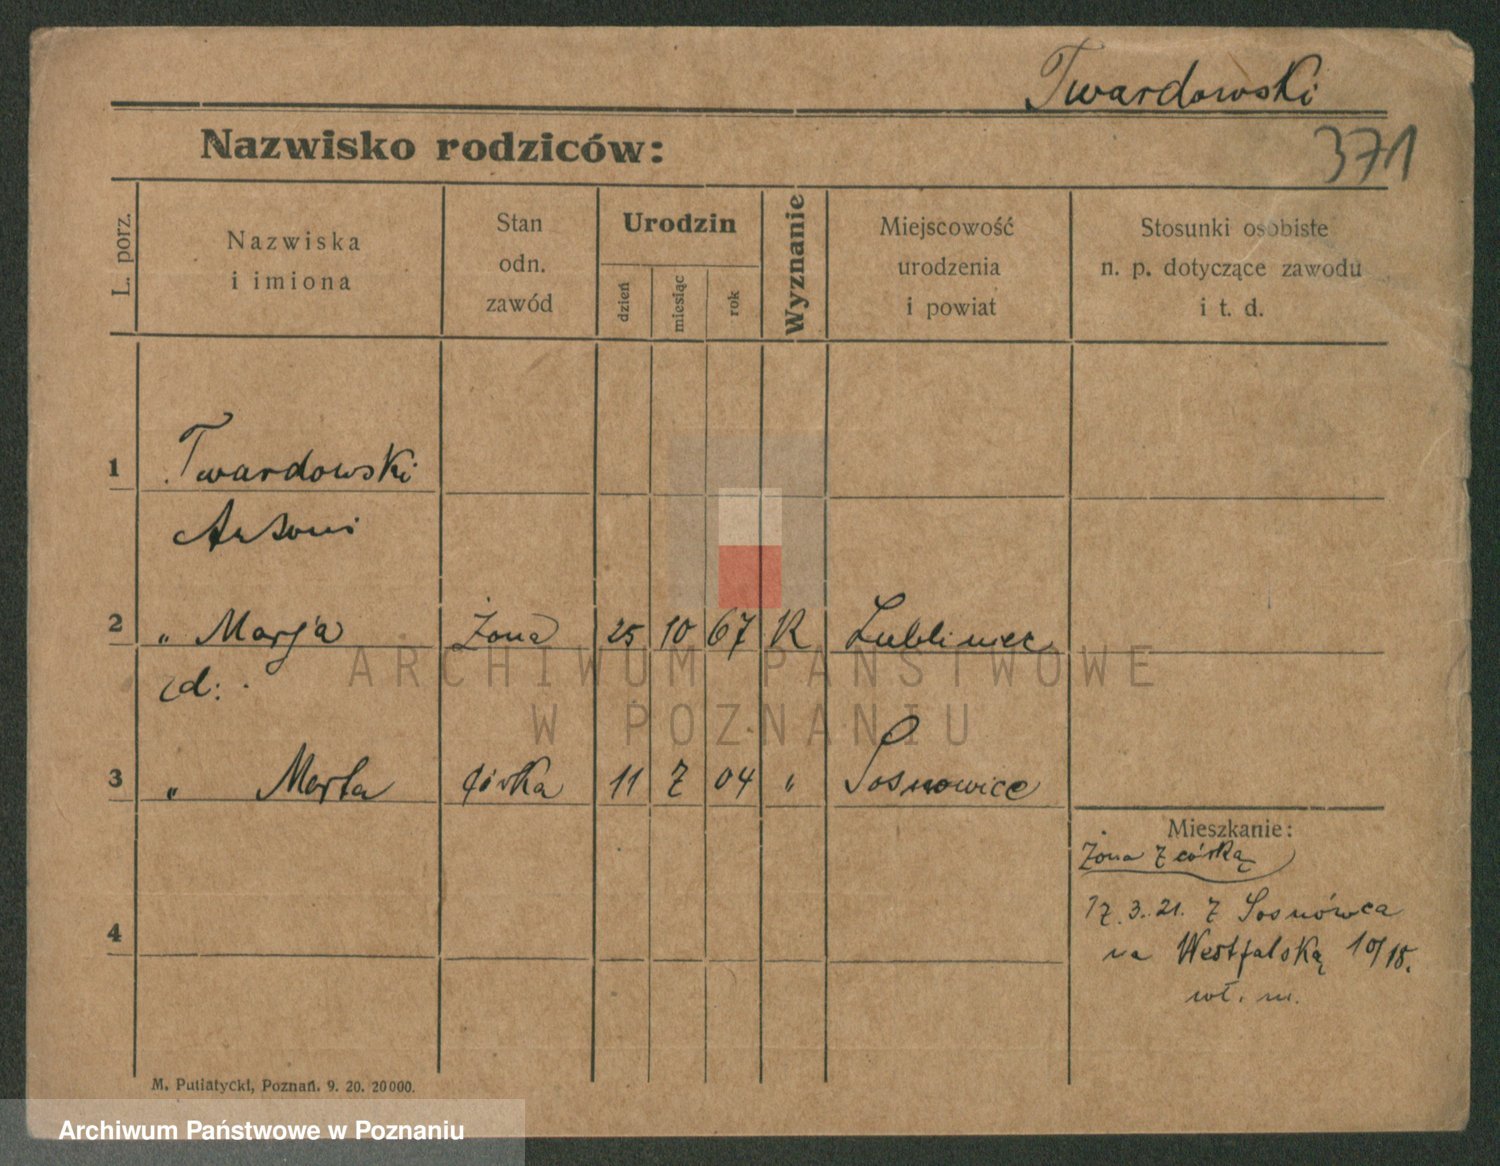 Twardowski
Nazwisko rodziców:
371
L. porz.
Nazwiska
i imiona
Stan
odn.
zawód
Urodzin
dzień
miesiąc
rok
Wyznanie
Miejscowość
urodzenia
i powiat
Stosunki osobiste
n. p. dotyczące zawodu
i t. d.
1 Twardowski
Antoni
2 " Marja żona 25 10 67 K Lubliniec
ARCHIWUM PAŃSTWOWE
W POZNANIU
3 " Marta córka 11 7 04 " Sosnowice
Mieszkanie:
żona z córką
17.3.21. z Sosnówca
na Westfalską 10/15.
wł. m.
4
M. Putiatycki, Poznań. 9. 20. 20000.
Archiwum Państwowe w Poznaniu